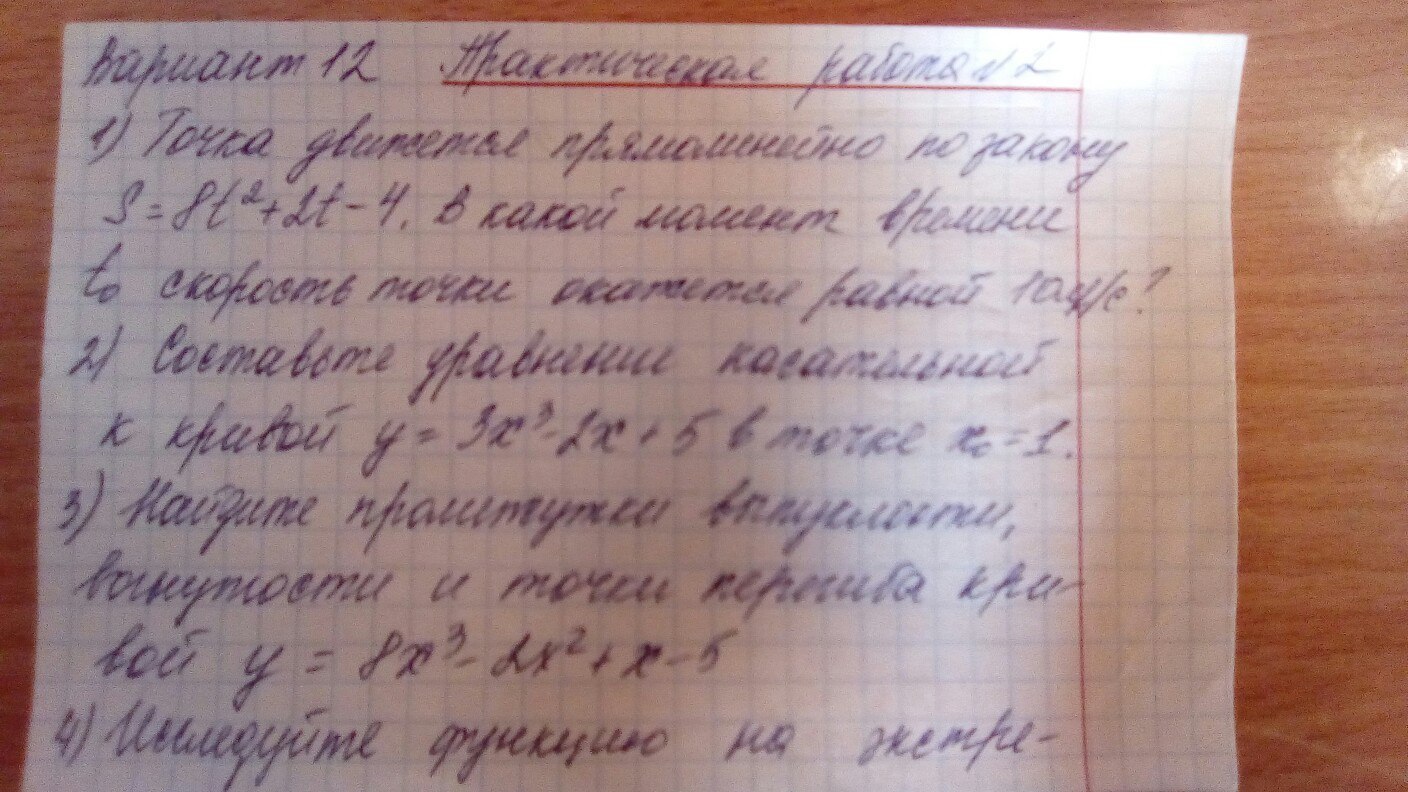 Вариант 12 Практическая работа №2
1) Точка движется прямолинейно по закону
S = 8t²+2t-4. В какой момент времени
t₀ скорость точки окажется равной 10м/с?
2) Составьте уравнение касательной
к кривой y = 3x³-2x+5 в точке x₀=1.
3) Найдите промежутки выпуклости,
вогнутости и точки перегиба кри-
вой y = 8x³-2x²+x-5
4) Исследуйте функцию на экстре-